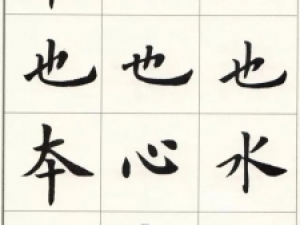 也 也 也
本 心 水